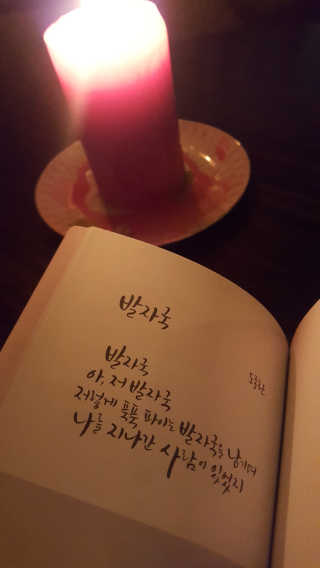 발자국
도종환
발자국
아, 저 발자국
저렇게 푹푹 파이는 발자국을 남기며
나를 지나간 사람이 있었지